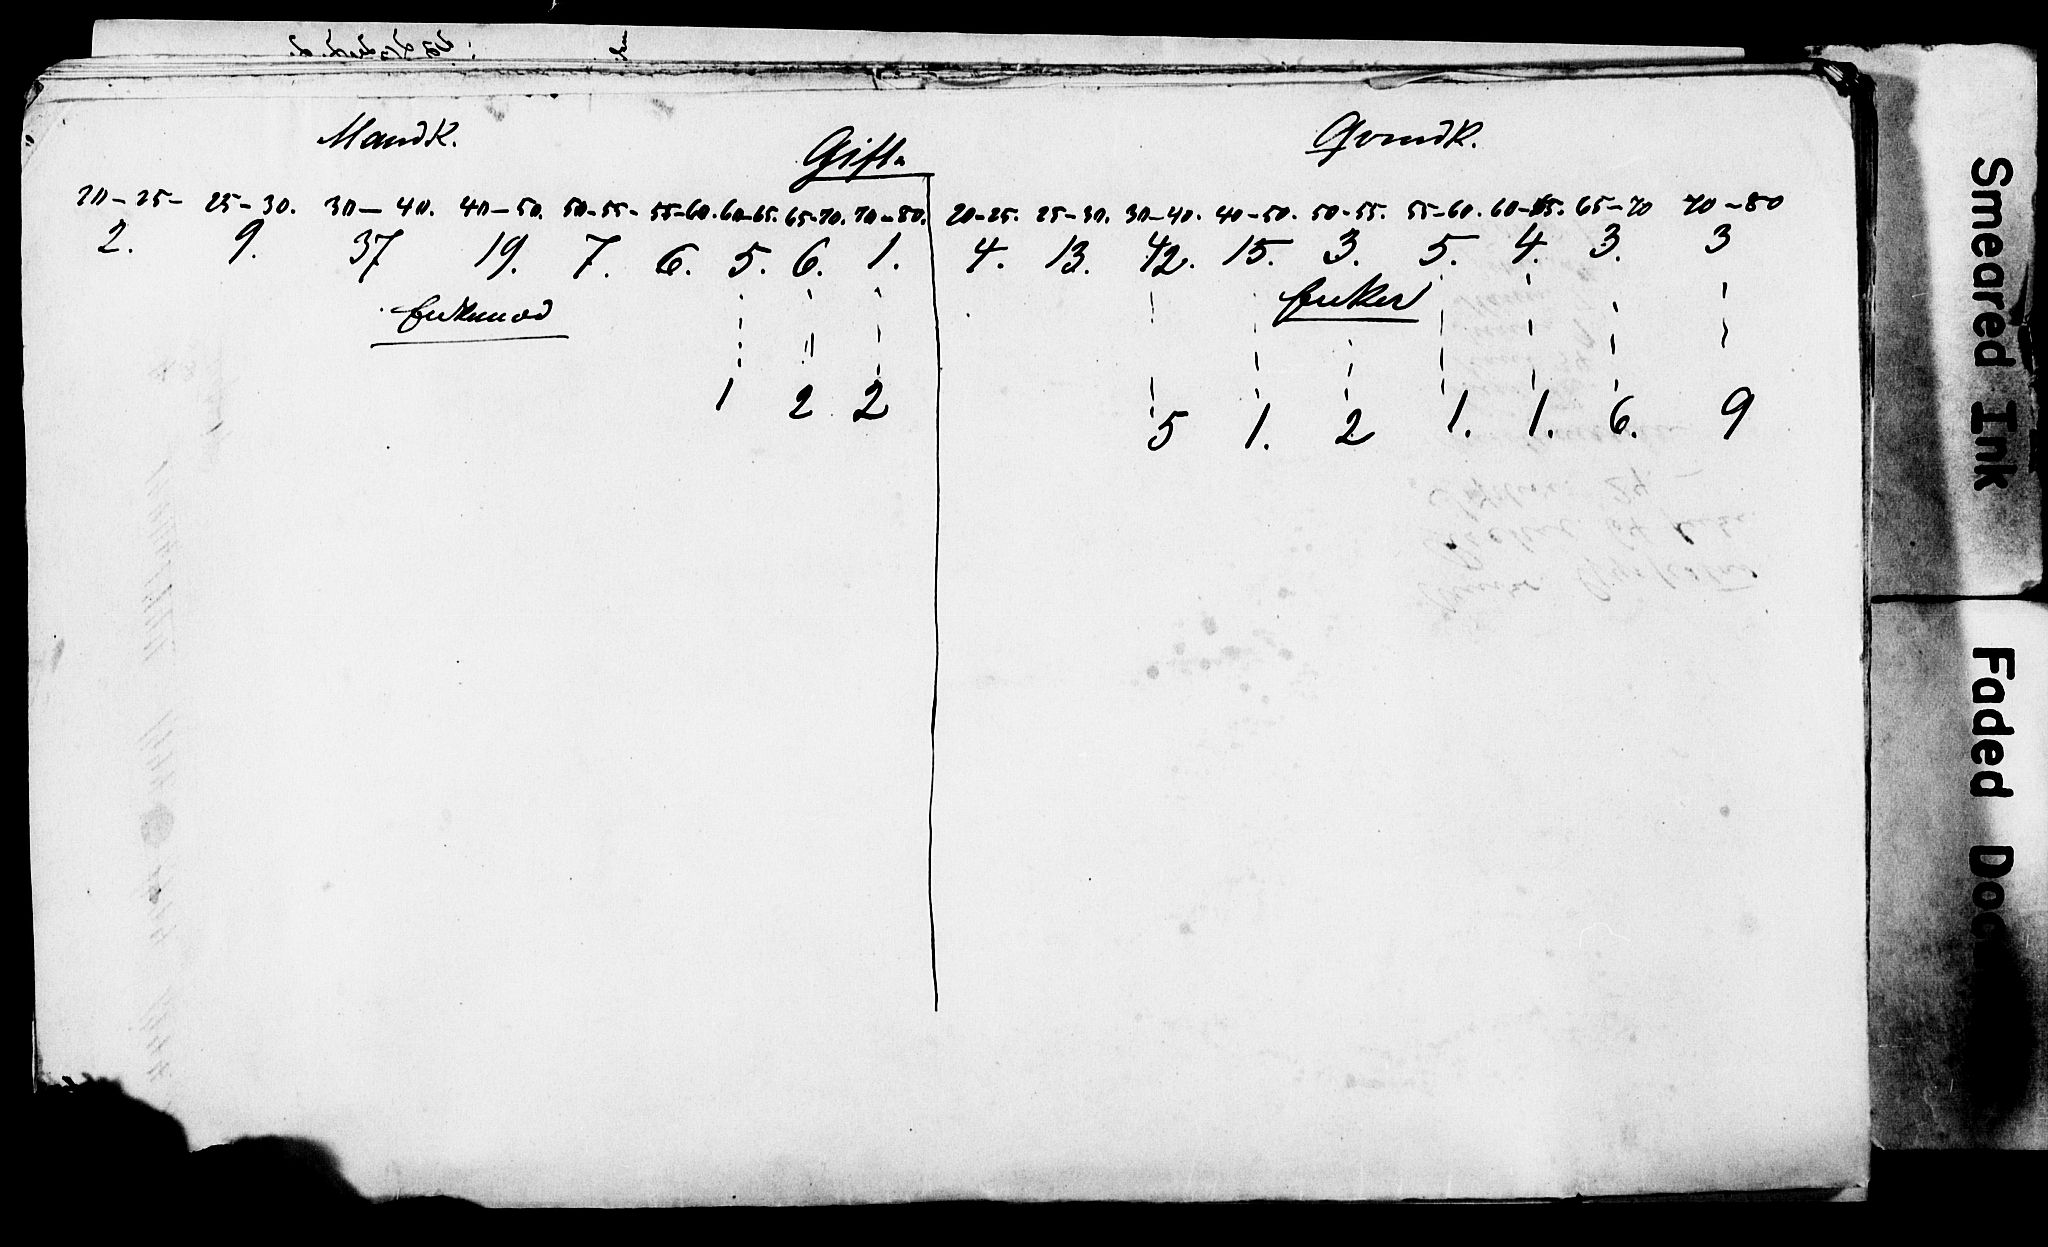 Mandk. Gifte Qvindk.
20-25- 25-30. 30-40. 40-50. 50-55- 55-60. 60-65. 65-70. 70-80. 20-25. 25-30. 30-40. 40-50. 50-55. 55-60. 60-65. 65-70 70-80
2. 9. 37 19. 7. 6. 5. 6. 1. 4. 13. 42. 15. 3. 5. 4. 3. 3
Enkemænd Enker
1 2 2 5 1. 2 1. 1. 6. 9
Smeared Ink
Faded Doc